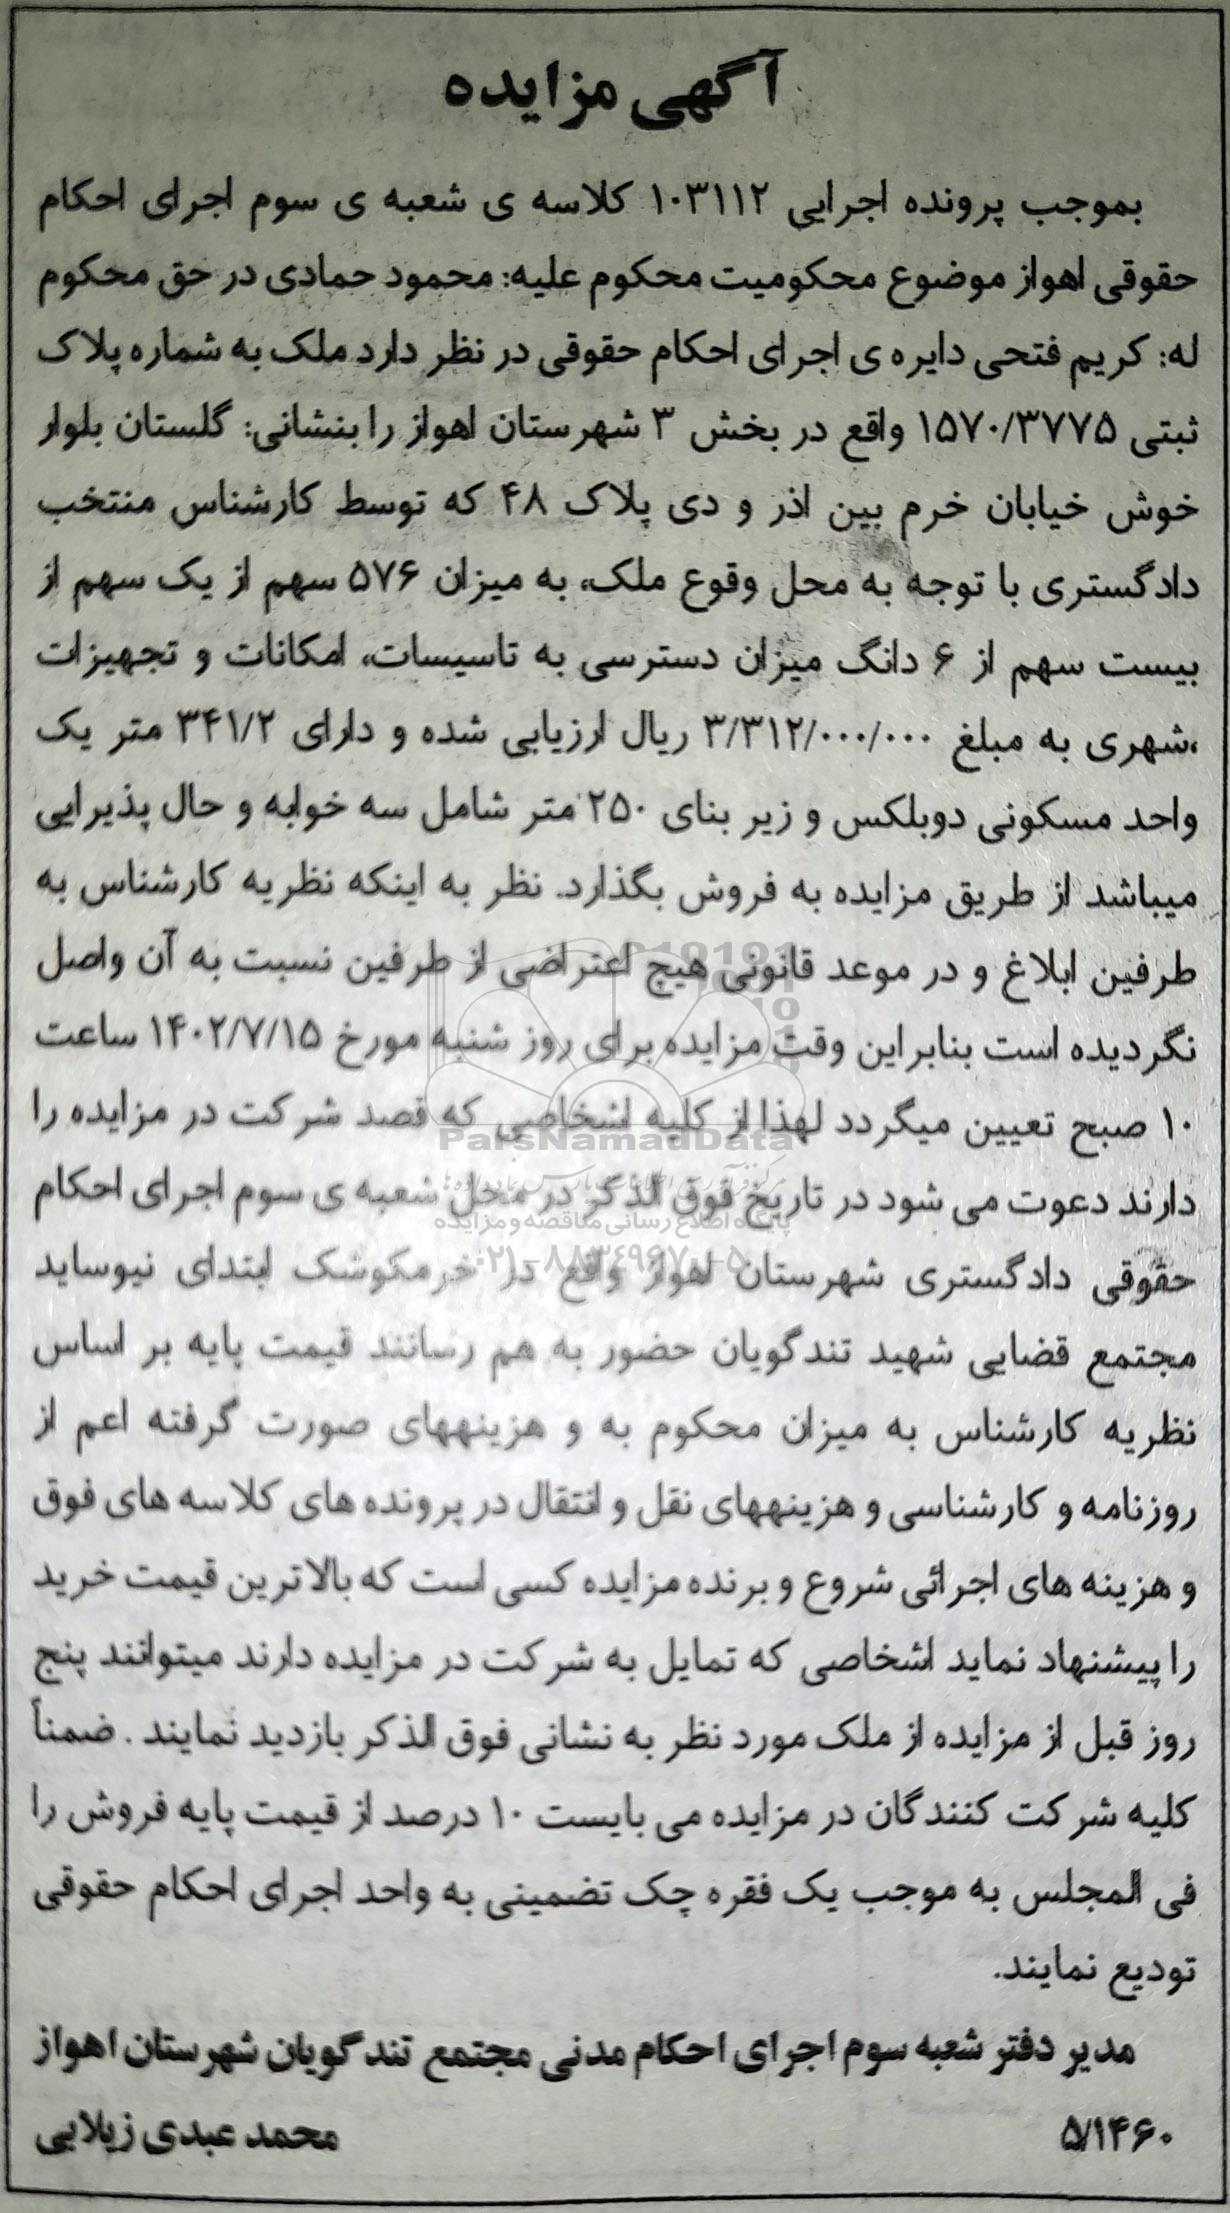 آگهی مزایده
بموجب پرونده اجرایی ۱۰۳۱۱۲ کلاسه ی شعبه ی سوم اجرای احکام
حقوقی اهواز موضوع محکومیت محکوم علیه: محمود حمادی در حق محکوم
له: کریم فتحی دایره ی اجرای احکام حقوقی در نظر دارد ملک به شماره پلاک
ثبتی ۱۵۷۰/۳۷۷۵ واقع در بخش ۳ شهرستان اهواز را بنشانی: گلستان بلوار
خوش خیابان خرم بین اذر و دی پلاک ۴۸ که توسط کارشناس منتخب
دادگستری با توجه به محل وقوع ملک، به میزان ۵۷۶ سهم از یک سهم از
بیست سهم از ۶ دانگ میزان دسترسی به تاسیسات، امکانات و تجهیزات
،شهری به مبلغ ۳/۳۱۲/۰۰۰/۰۰۰ ریال ارزیابی شده و دارای ۳۴۱/۲ متر یک
واحد مسکونی دوبلکس و زیر بنای ۲۵۰ متر شامل سه خوابه و حال پذیرایی
میباشد از طریق مزایده به فروش بگذارد. نظر به اینکه نظریه کارشناس به
طرفین ابلاغ و در موعد قانونی هیچ اعتراضی از طرفین نسبت به آن واصل
نگردیده است بنابراین وقت مزایده برای روز شنبه مورخ ۱۴۰۲/۷/۱۵ ساعت
۱۰ صبح تعیین میگردد لهذا از کلیه اشخاصی که قصد شرکت در مزایده را
ParsNamadData
دارند دعوت می شود در تاریخ فوق الذکر در محل شعبه ی سوم اجرای احکام
پایگاه اطلاع رسانی مناقصه و مزایده
حقوقی دادگستری شهرستان اهواز واقع در خرمکوشک ابتدای نیوساید
۰۲۱-۸۸۳۴۹۶۷۰-۵
مجتمع قضایی شهید تندگویان حضور به هم رسانند قیمت پایه بر اساس
نظریه کارشناس به میزان محکوم به و هزینههای صورت گرفته اعم از
روزنامه و کارشناسی و هزینههای نقل و انتقال در پرونده های کلاسه های فوق
و هزینه های اجرائی شروع و برنده مزایده کسی است که بالاترین قیمت خرید
را پیشنهاد نماید اشخاصی که تمایل به شرکت در مزایده دارند میتوانند پنج
روز قبل از مزایده از ملک مورد نظر به نشانی فوق الذکر بازدید نمایند . ضمناً
کلیه شرکت کنندگان در مزایده می بایست ۱۰ درصد از قیمت پایه فروش را
فی المجلس به موجب یک فقره چک تضمینی به واحد اجرای احکام حقوقی
تودیع نمایند.
مدیر دفتر شعبه سوم اجرای احکام مدنی مجتمع تندگویان شهرستان اهواز
۵/۱۴۶۰ محمد عبدی زیلایی